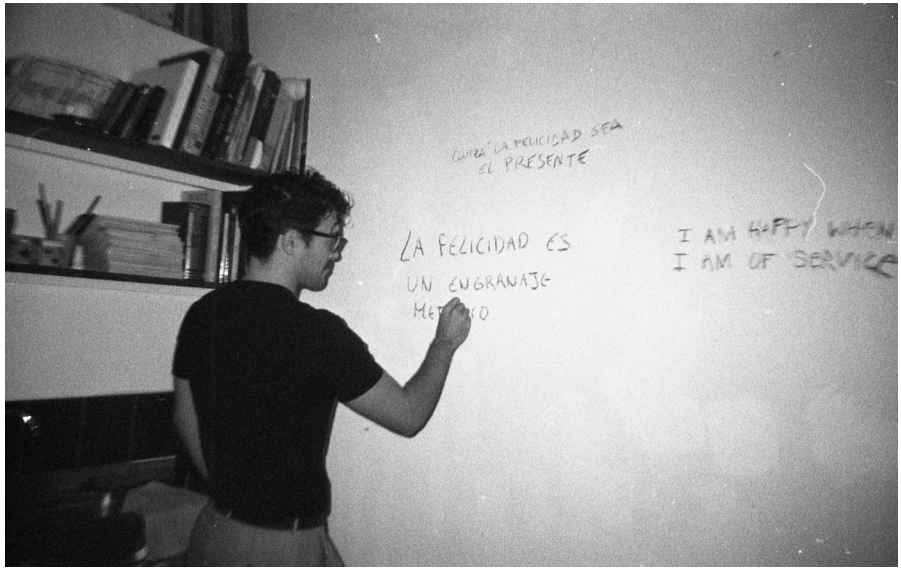 QUIZÁ LA FELICIDAD SEA
EL PRESENTE
LA FELICIDAD ES
UN ENGRANAJE
I AM HAPPY WHEN
I AM OF SERVICE